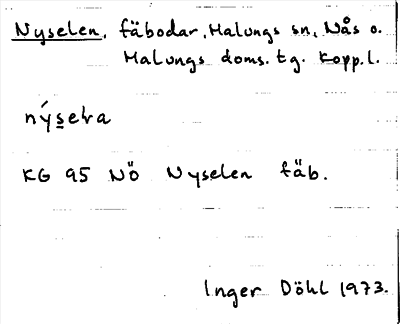 Nyselen, fäbodar, Malungs sn, Nås o.
Malungs doms. tg. Kopp. l.
KG 95 NÖ Nyselen fäb.
Inger Döhl 1973.